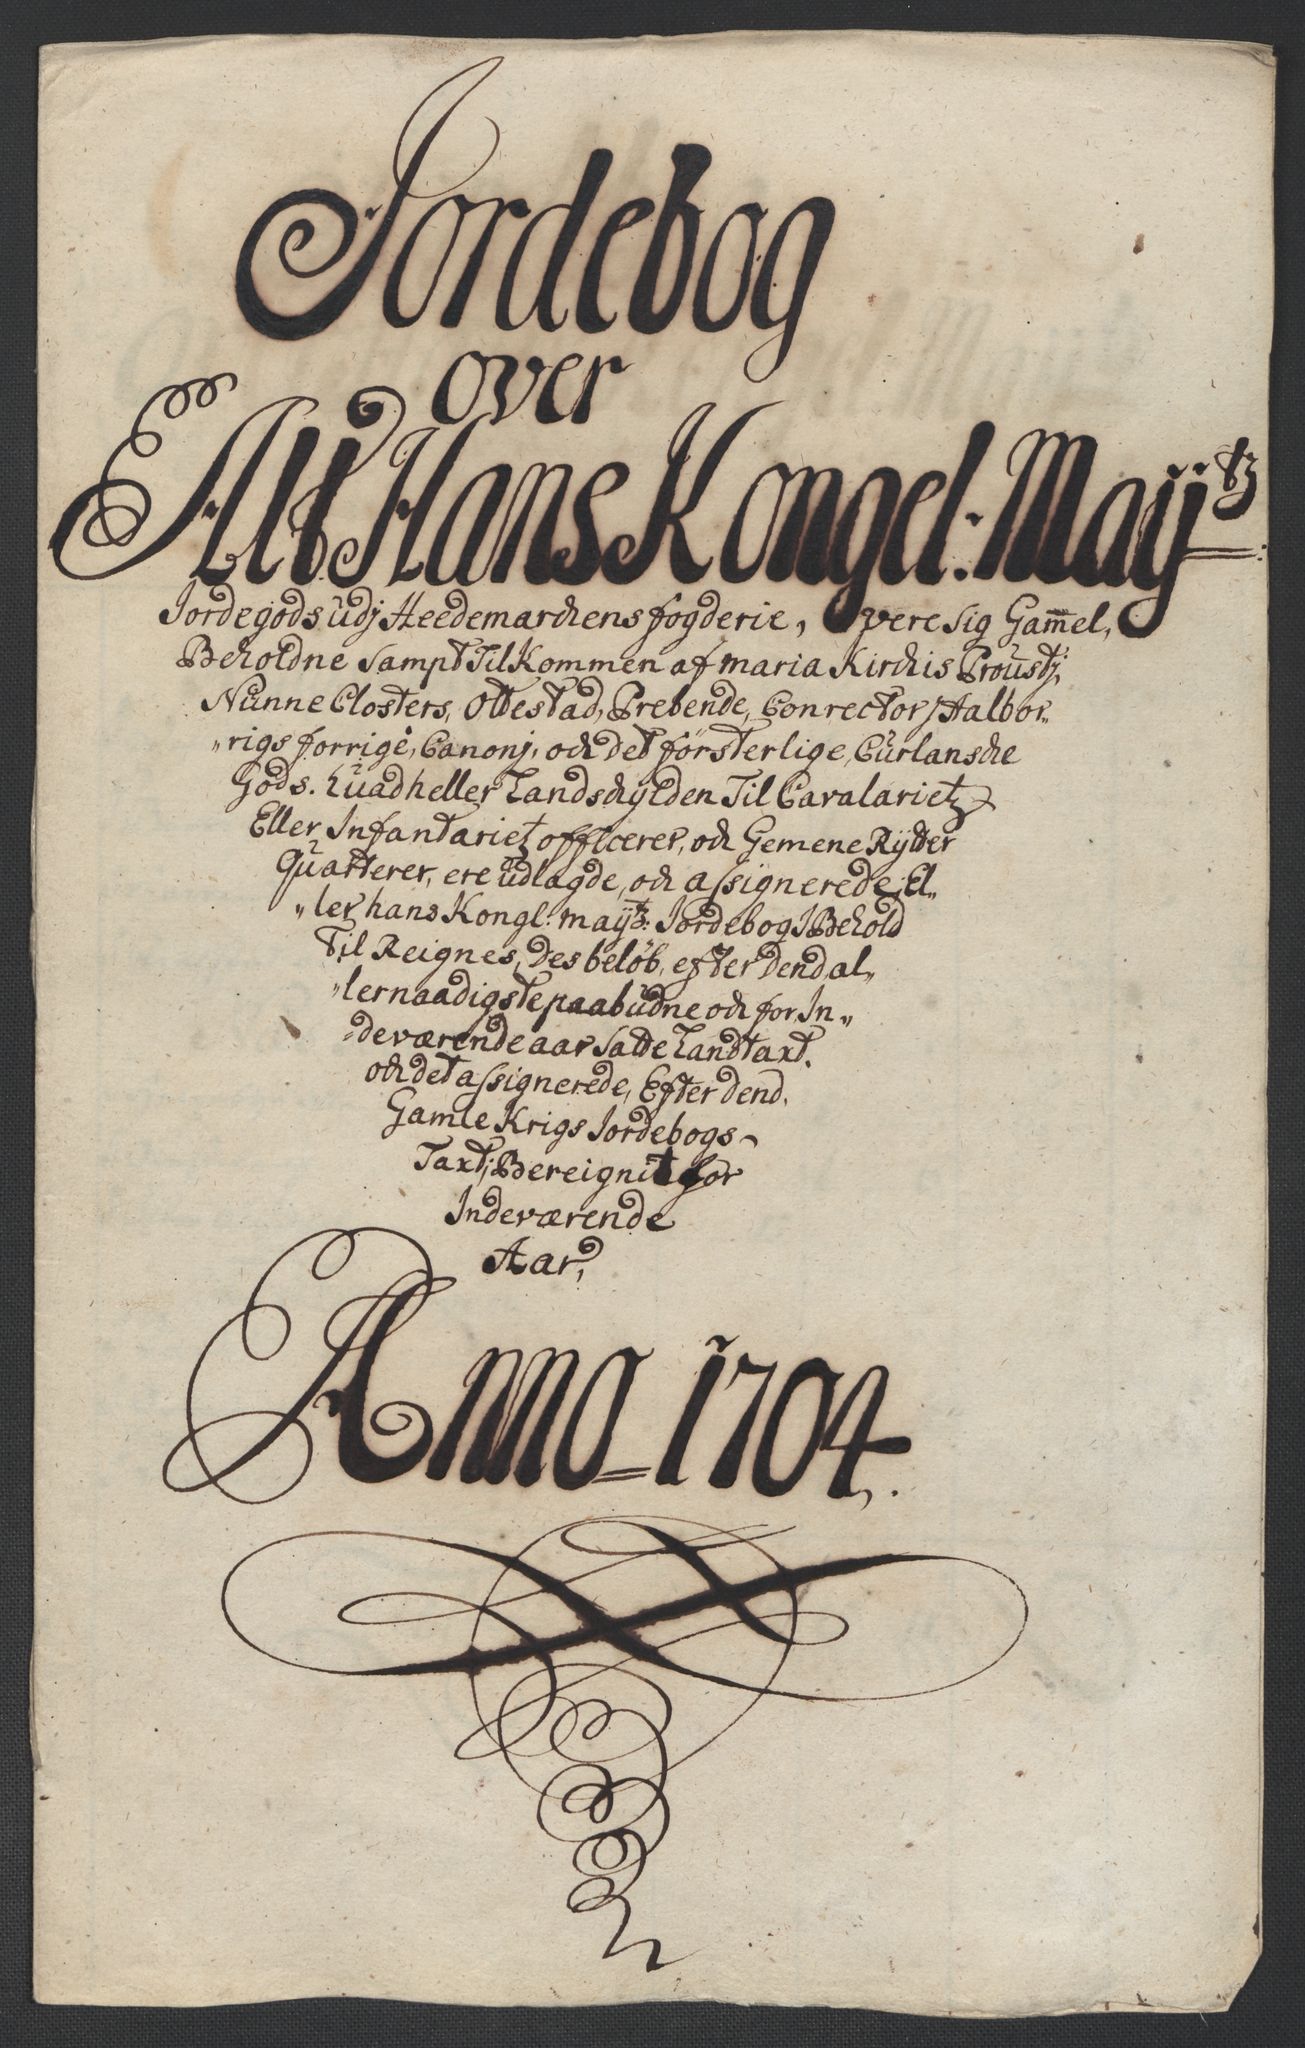 Jordebog
over
Alt Hans Kongel: Maÿtz
Jordegods udj Heedemarchens fogderie, vere sig Gam̅el,
Beholdne sampt Til Kommen af Maria Kirchis Proustj,
Nunne Closters, Ottestad, Prebende, Conrector, Halbor„
„rigs forrige, Canonj, och det försterlige, Curlansche
Gods. huad heller Landschylden Til Cavalarietz
Eller Infantarietz officerer, och Gemene Rÿtter
Quarterer, ere udlagde, och assignerede, El„
„ler hans Kongl: maÿtz: Jordebog J Behold
Til Reignes, des beløb, efter dend al„
„lernaadigste paabudne och for In„
„deværende aar satte Landtaxt.
och det assignerede, Efter dend.
Gamle Krigs Jordebogs
Taxt, Bereignit for
Indeværende
Aar,
Anno 1704.